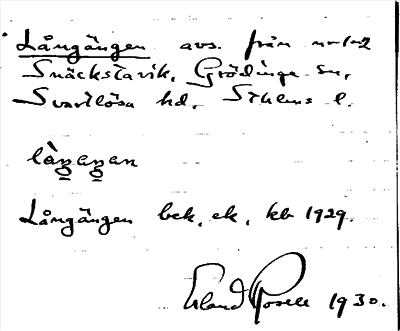 Långängen avs. från nr 1-2
Snäckstavik, Grödinge sn,
Svartlösa hd, Sthlms l.
làŋaŋan
Långängen bek, ek, kb 1929.
Erland Rosell 1930.